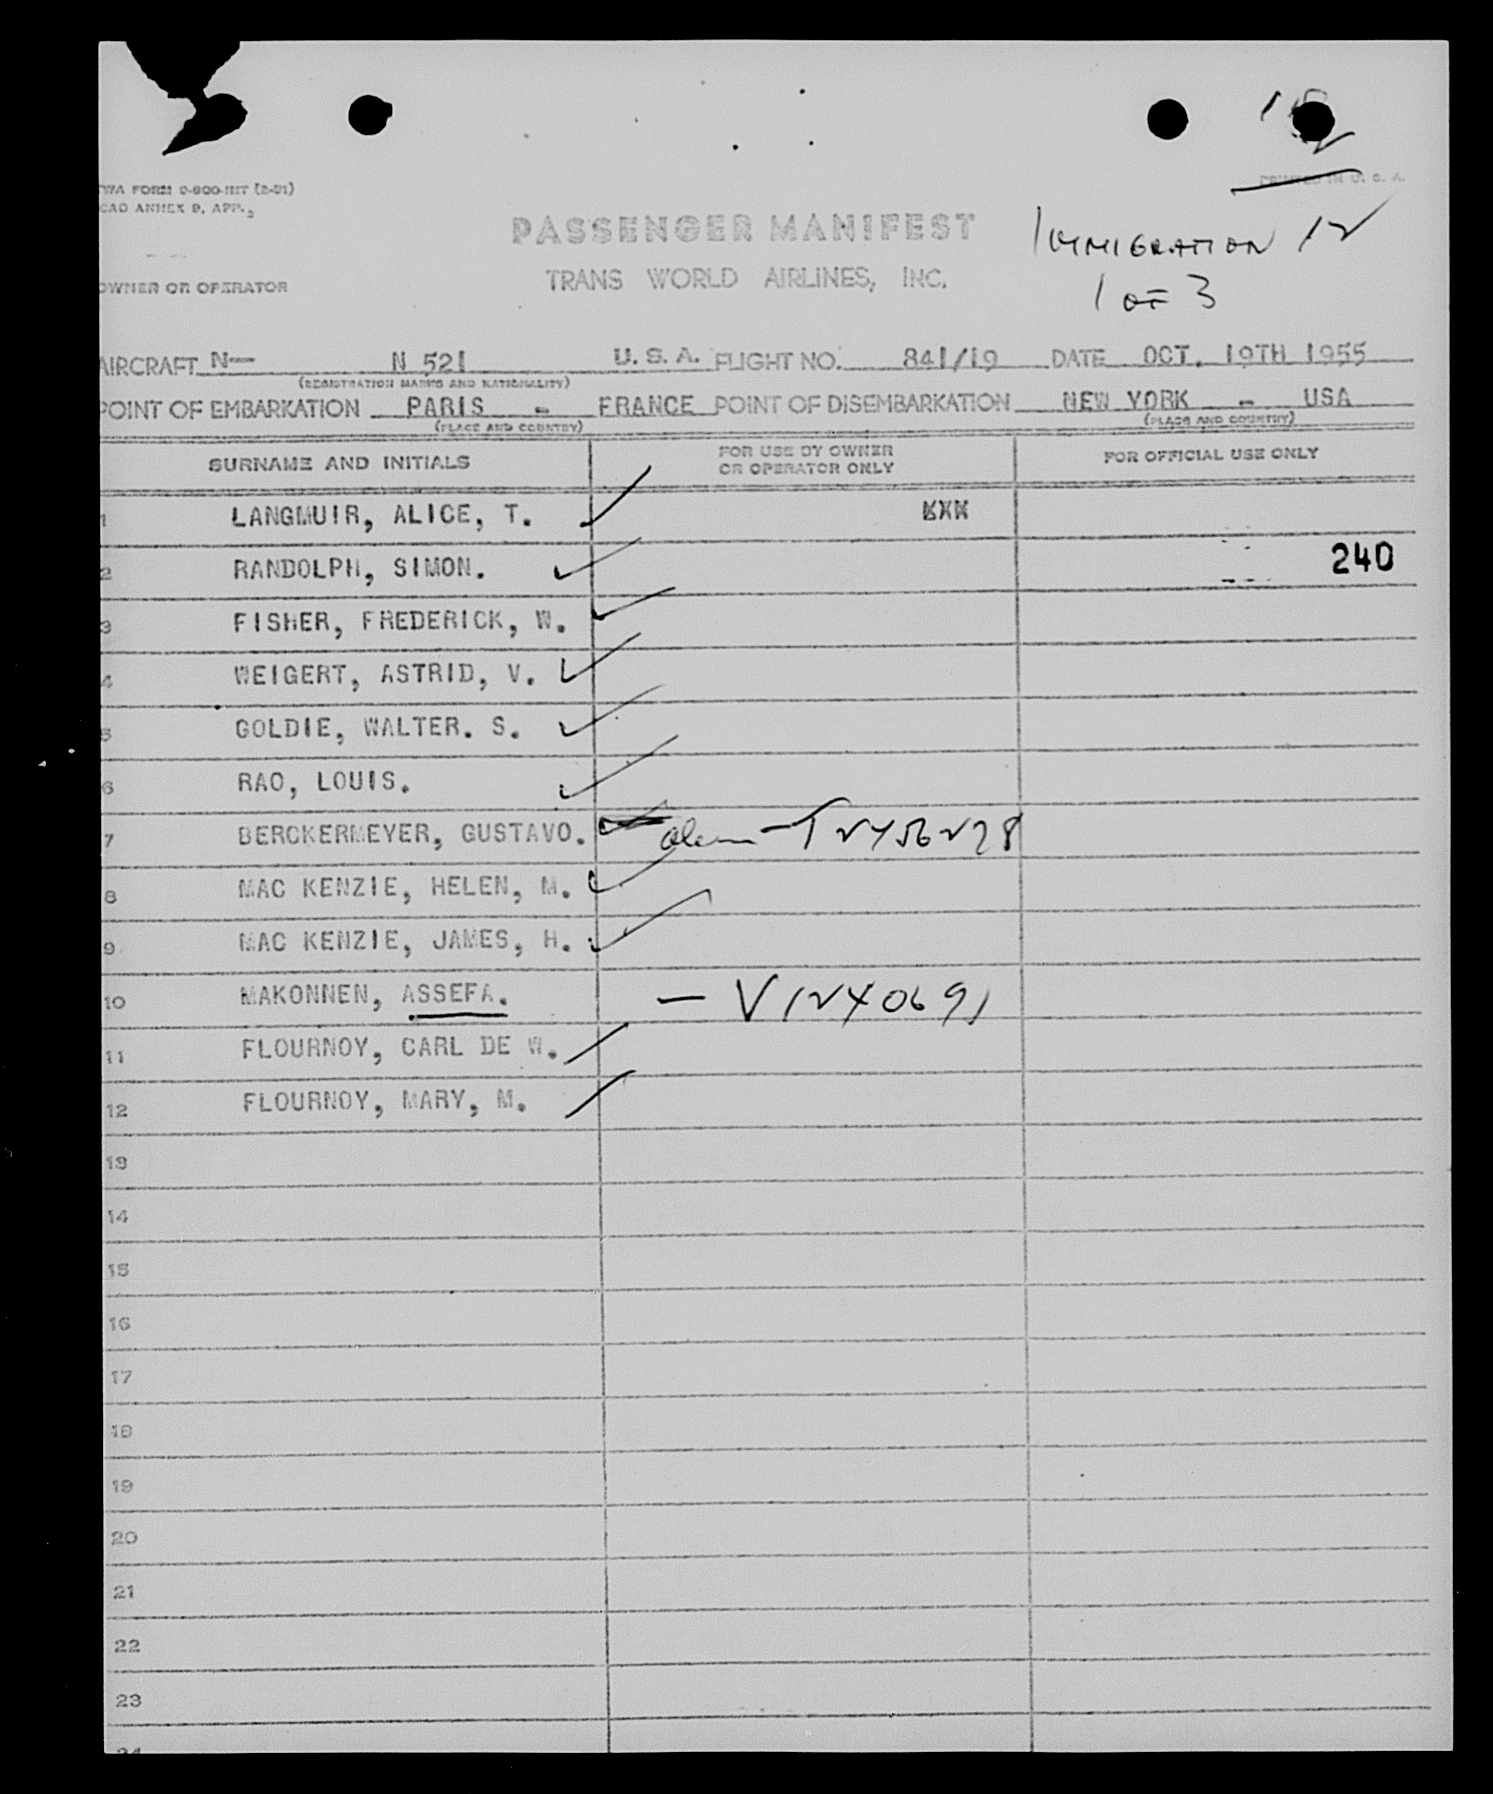 TWA FORM
ICAO ANNEX 9, APP. 3
PRINTED IN U. S. A.
PASSENGER MANIFEST
IMMIGRATION 12
TRANS WORLD AIRLINES, INC.
OWNER OR OPERATOR
1 OF 3
AIRCRAFT N— N 521 U. S. A. FLIGHT NO. 841/19 DATE OCT. 19TH 1955
(REGISTRATION MARKS AND NATIONALITY)
POINT OF EMBARKATION PARIS - FRANCE POINT OF DISEMBARKATION NEW YORK - USA
(PLACE AND COUNTRY) (PLACE AND COUNTRY)
SURNAME AND INITIALS FOR USE BY OWNER OR OPERATOR ONLY FOR OFFICIAL USE ONLY
1 LANGMUIR, ALICE, T.
2 RANDOLPH, SIMON. 240
3 FISHER, FREDERICK, W.
4 WEIGERT, ASTRID, V.
5 GOLDIE, WALTER. S.
6 RAO, LOUIS.
7 BERCKERMEYER, GUSTAVO.
8 MAC KENZIE, HELEN, M.
9 MAC KENZIE, JAMES, H.
10 MAKONNEN, ASSEFA. — V1240691
11 FLOURNOY, CARL DE W.
12 FLOURNOY, MARY, M.
13
14
15
16
17
18
19
20
21
22
23
24